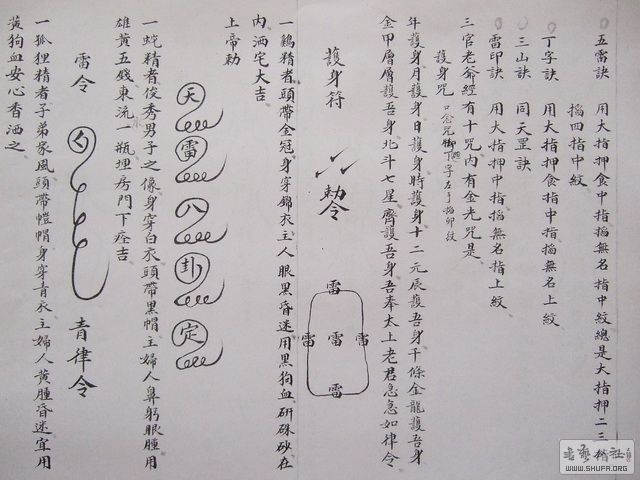 五雷訣　用大指押食中指掐無名指中紋總是大指押二三
掐四指中紋
丁字訣　用大指押食指中指掐無名上紋
三山訣　同天罡訣
雷印訣　用大指押中指掐無名指上紋
三官老爺經有十咒內有金光咒是
護身咒
年護身月護身日護身時護身十二元辰護吾身千條金龍護吾身
金甲層層護吾身北斗七星齊護吾身吾奉太上老君急急如律令
護身符
勅令
雷
雷 雷 雷
雷
一鷄精者頭帶金冠身穿錦衣主人眼黑昏迷用黑狗血研硃砂在
內洒宅大吉
上帝勅
天雷八卦定
一蛇精者俊秀男子之像身穿白衣頭帶黑帽主婦人鼻躬眼腫用
雄黃五錢東流一瓶埋房門下痊吉
雷令
青律令
一狐狸精者子弟家風頭帶幨帽身穿青衣主婦人黃腫昏迷宜用
黃狗血安心香洒之
書藝公社
WWW.SHUFA.ORG